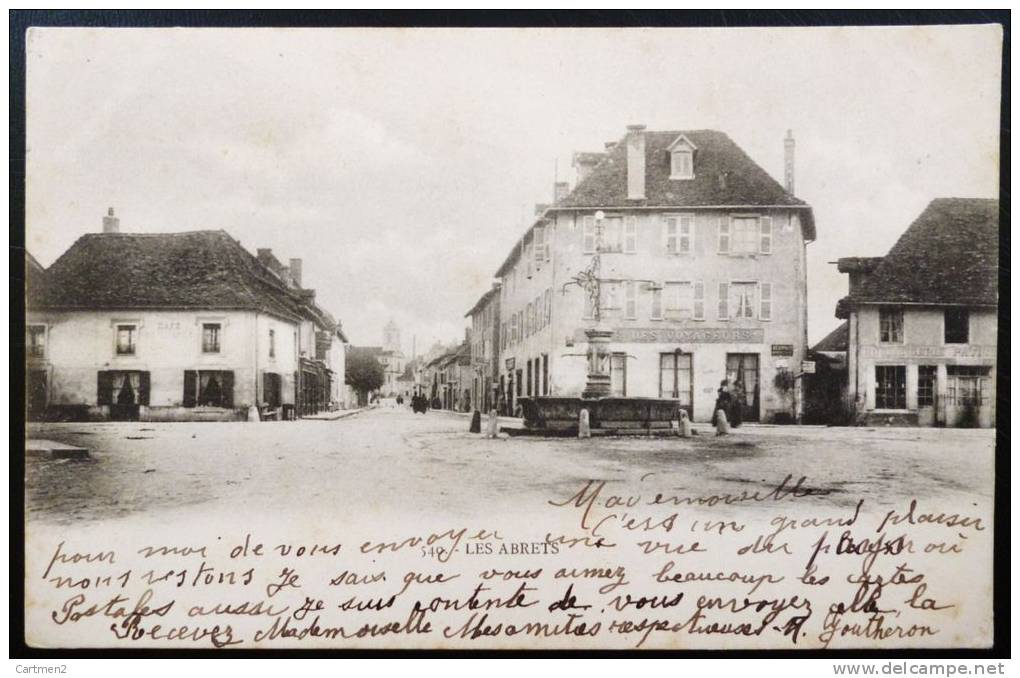 CAFÉ
DES VOYAGEURS
Mademoiselle
C'est un grand plaisir
pour moi de vous envoyer une vue du pays où
540. - LES ABRETS
nous restons Je sais que vous aimez beaucoup les cartes
Postales aussi Je suis contente de vous envoyez elle la
Recevez Mademoiselle Mes amités respectieuses
Cartmen2
www.delcampe.net